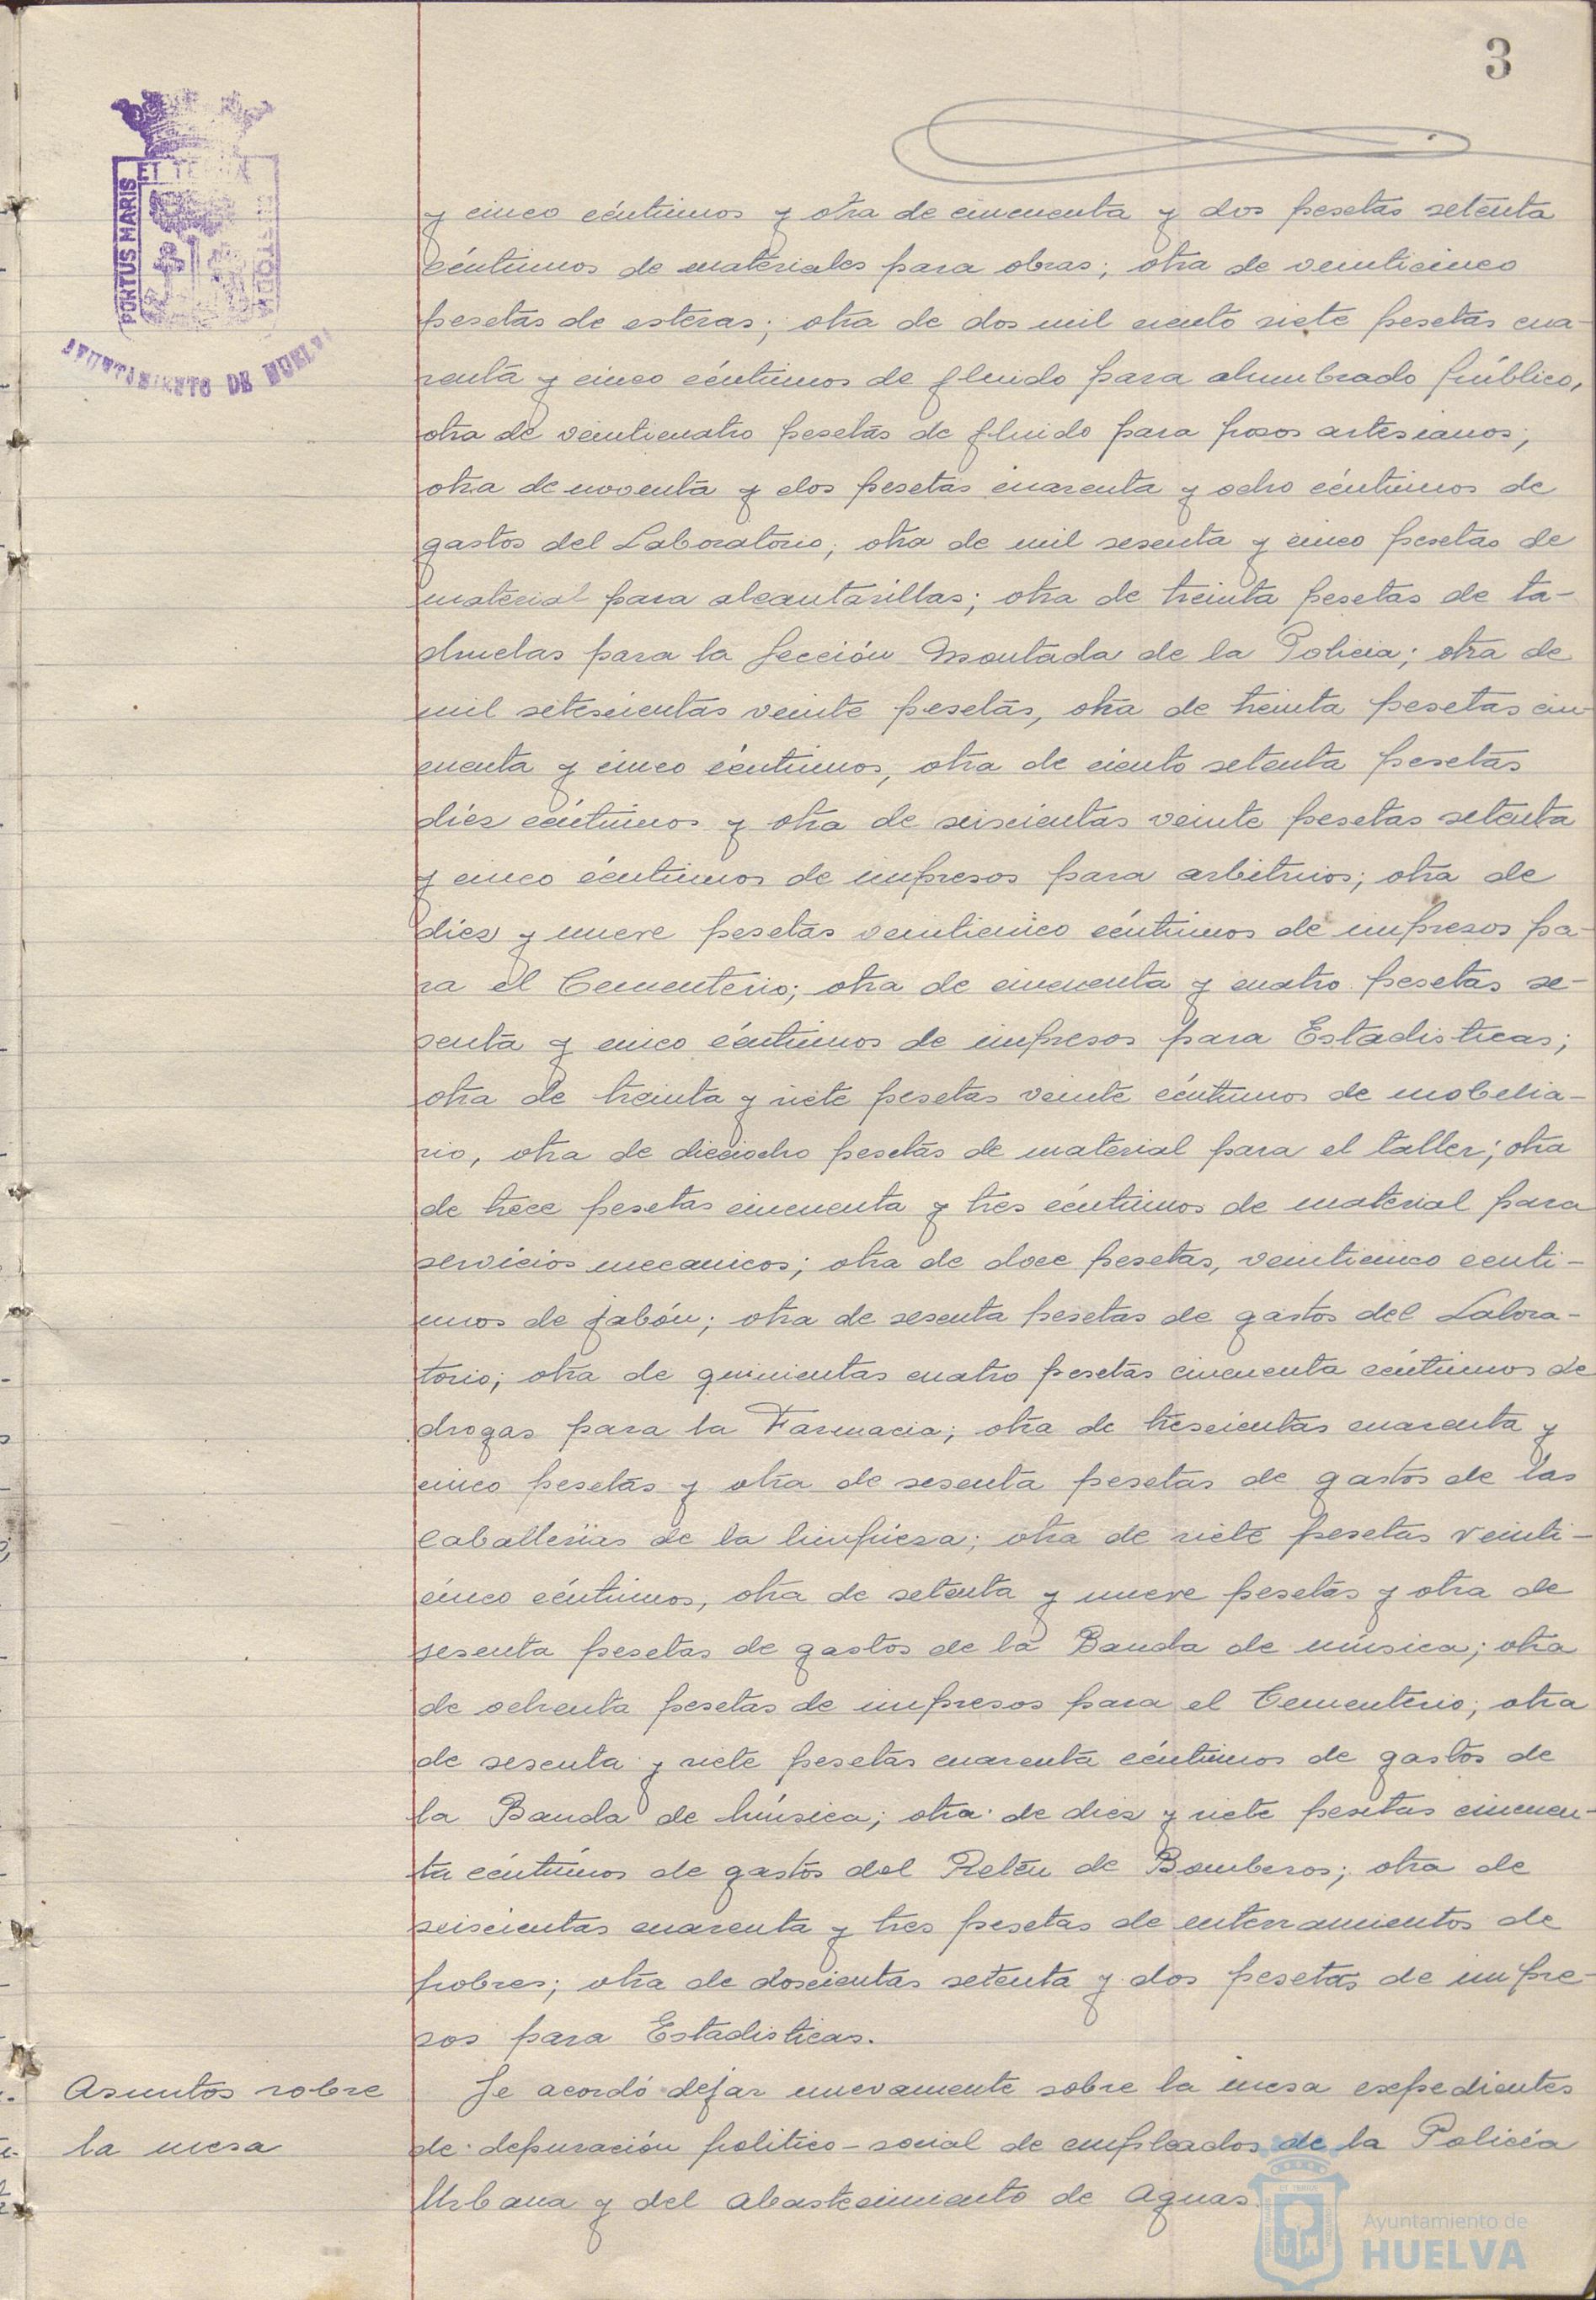 3
ET TERRA
PORTUS MARIS
CUSTODIA
AYUNTAMIENTO DE HUELVA
y cinco céntimos y otra de cincuenta y dos pesetas setenta
céntimos de materiales para obras; otra de veinticinco
pesetas de esteras; otra de dos mil ciento siete pesetas cua-
renta y cinco céntimos de fluido para alumbrado público,
otra de veinticuatro pesetas de fluido para pozos artesianos;
otra de noventa y dos pesetas cuarenta y ocho céntimos de
gastos del Laboratorio; otra de mil sesenta y cinco pesetas de
material para alcantarillas; otra de treinta pesetas de ta-
chuelas para la Sección Montada de la Policia; otra de
mil setescientas veinte pesetas, otra de treinta pesetas cin-
cuenta y cinco céntimos, otra de ciento setenta pesetas
diéz céntimos y otra de seiscientas veinte pesetas setenta
y cinco céntimos de impresos para arbitrios; otra de
diez y nueve pesetas veinticinco céntimos de impresos pa-
ra el Cementerio; otra de cincuenta y cuatro pesetas se-
senta y cinco céntimos de impresos para Estadisticas;
otra de treinta y siete pesetas veinte céntimos de mobelia-
rio, otra de dieciocho pesetas de material para el taller; otra
de trece pesetas cincuenta y tres céntimos de material para
servicios mecanicos; otra de doce pesetas, veinticinco centi-
mos de jabón; otra de sesenta pesetas de gastos del Labora-
torio; otra de quinientas cuatro pesetas cincuenta céntimos de
drogas para la Farmacia; otra de trescientas cuarenta y
cinco pesetas y otra de sesenta pesetas de gastos de las
caballerías de la limpieza; otra de siete pesetas veinti-
cinco céntimos, otra de setenta y nueve pesetas y otra de
sesenta pesetas de gastos de la Banda de música; otra
de ochenta pesetas de impresos para el Cementerio; otra
de sesenta y siete pesetas cuarenta céntimos de gastos de
la Banda de Música; otra de diez y siete pesetas cincuen-
ta céntimos de gastos del Retén de Bomberos; otra de
seiscientas cuarenta y tres pesetas de enterramientos de
pobres; otra de doscientas setenta y dos pesetas de impre-
sos para Estadisticas.
Asuntos sobre
la mesa
Se acordó dejar nuevamente sobre la mesa expedientes
de depuración politico-social de empleados de la Policía
Urbana y del Abastecimiento de Aguas.
Ayuntamiento de
HUELVA